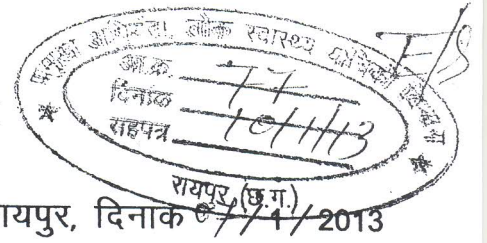 प्रमुख अभियंता, लोक स्वास्थ्य यांत्रिकी
आ.क्र. 77
दिनांक 10/1/13
सहपत्र
रायपुर (छ.ग.)
रायपुर, दिनांक /1/2013